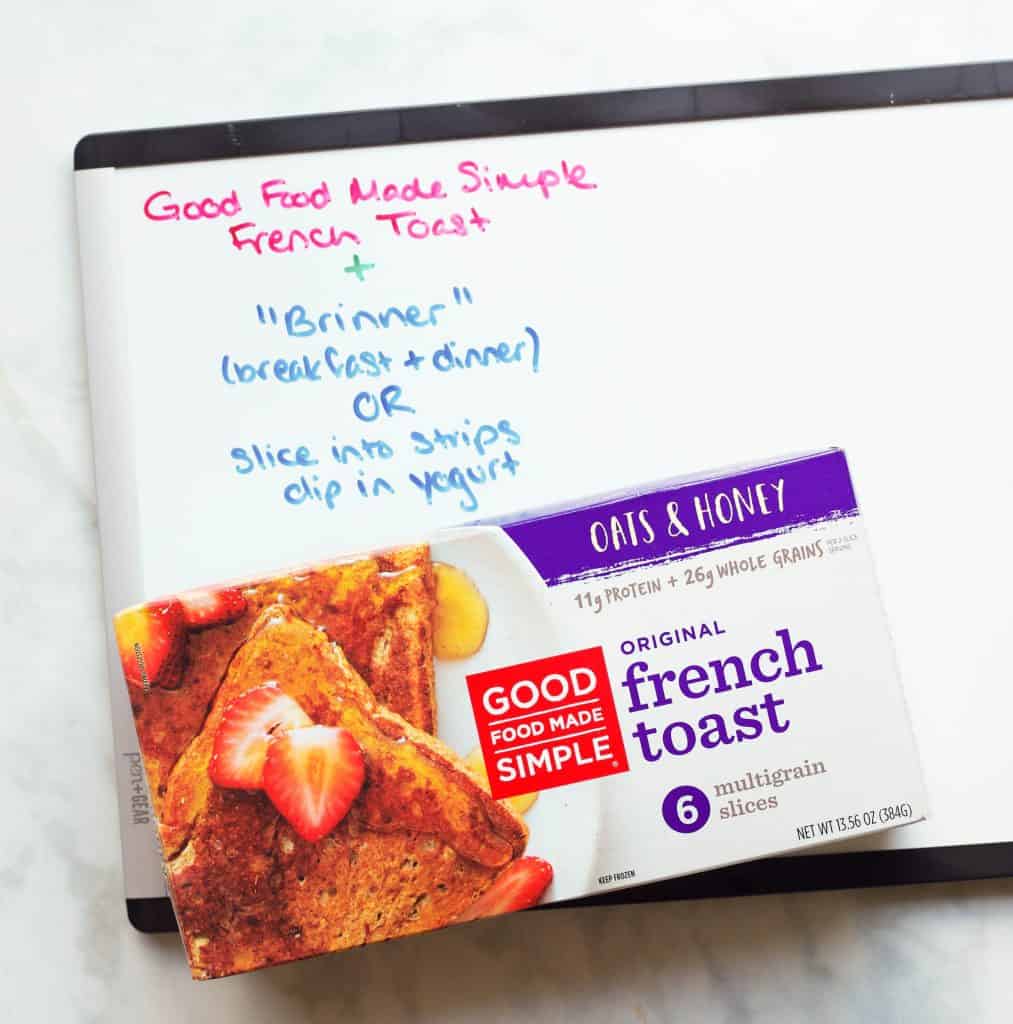 Good Food Made Simple
French Toast
+
"Brinner"
(breakfast + dinner)
OR
slice into strips
dip in yogurt
OATS & HONEY
11g PROTEIN + 26g WHOLE GRAINS
ORIGINAL
french
toast
GOOD
FOOD MADE
SIMPLE®
6 multigrain
slices
NET WT 13.56 OZ (384G)
KEEP FROZEN
pen+GEAR